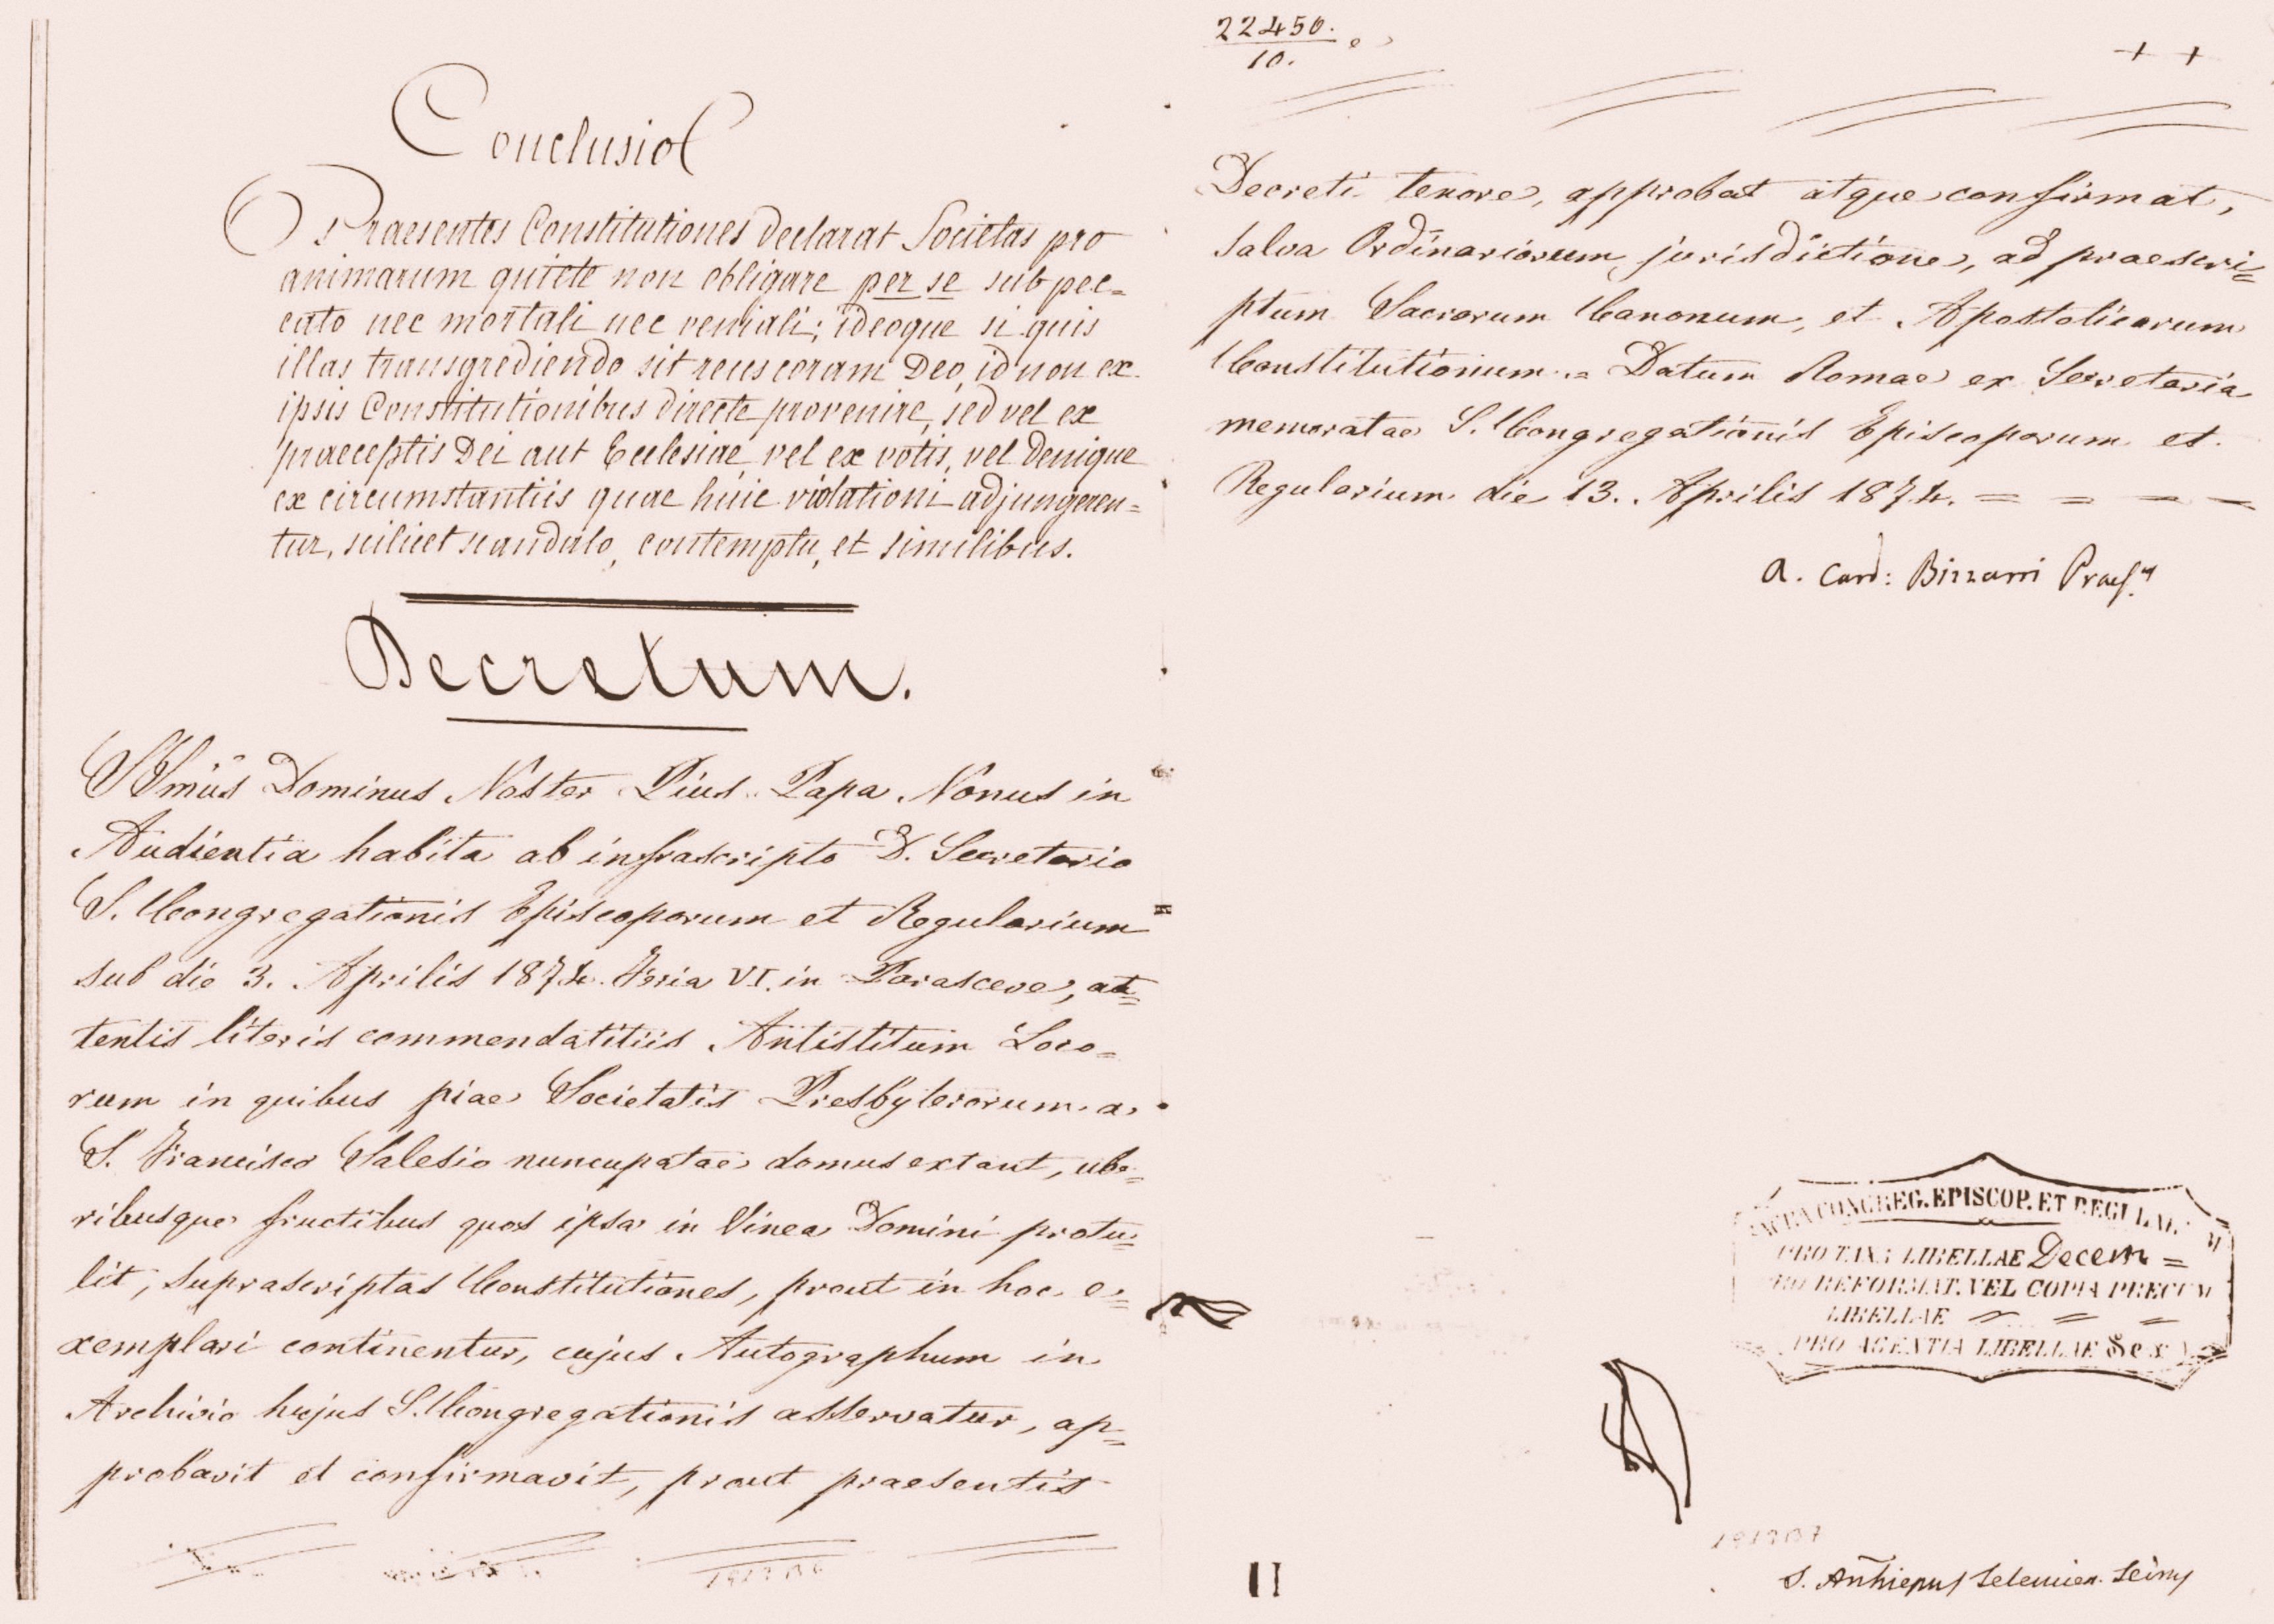 Conclusio
Praesentes Constitutiones declarat Societas pro
animarum quiete non obligare per se sub pec=
cato nec mortali nec veniali; ideoque si quis
illas transgrediendo sit reus coram Deo, id non ex
ipsis Constitutionibus directe provenire, sed vel ex
praeceptis Dei aut Ecclesiae, vel ex votis, vel denique
ex circumstantiis quae huic violationi adjungeren=
tur, scilicet scandalo, contemptu, et similibus.
Decretum.
SSmus Dominus Noster Pius Papa Nonus in
Audientia habita ab infrascripto D. Secretario
S. Congregationis Episcoporum et Regularium
sub die 3. Aprilis 1874. Feria VI. in Parasceve, at=
tentis literis commendatitiis Antistitum Loco=
rum in quibus piae Societatis Presbyterorum a
S. Francisco Salesio nuncupatae domus extant, ube=
ribusque fructibus quos ipsa in Vinea Domini protu=
lit, suprascriptas Constitutiones, prout in hoc e=
xemplari continentur, cujus Autographum in
Archivio hujus S. Congregationis asservatur, ap=
probavit et confirmavit, prout praesentis
22450.
10.
+ +
Decreti tenore, approbat atque confirmat,
salva Ordinariorum jurisdictione, ad praescri=
ptum Sacrorum Canonum, et Apostolicarum
Constitutionum. = Datum Romae ex Secretaria
memoratae S. Congregationis Episcoporum et
Regularium die 13. Aprilis 1874. = = = =
A. Card: Bizzarri Praef.
SACRA CONGREG. EPISCOP. ET REGULAR.
PRO TAXA LIBELLAE Decem =
PRO REFORMAT. VEL COPIA PRECUM
LIBELLAE = = =
PRO AGENTIA LIBELLAE Sex
II
S.